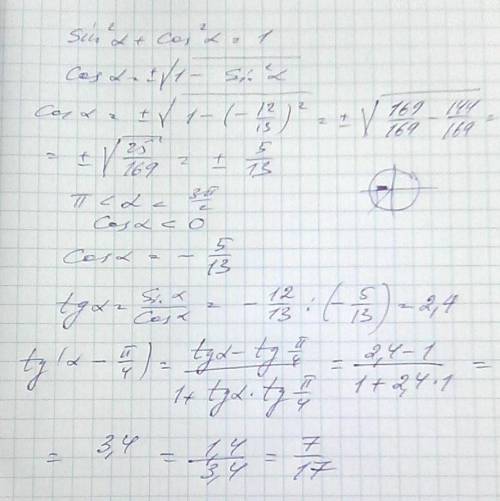 sin²α + cos²α = 1
cosα = ±√(1 - sin²α)
cosα = ±√(1 - (-12/13)²) = ±√(169/169 - 144/169) =
= ±√(25/169) = ± 5/13
π < α < 3π/2
cosα < 0
cosα = - 5/13
tgα = sinα/cosα = - 12/13 : (- 5/13) = 2,4
tg(α - π/4) = (tgα - tg π/4)/(1 + tgα · tg π/4) = (2,4 - 1)/(1 + 2,4 · 1) =
= 3,4 = 1,4/3,4 = 7/17